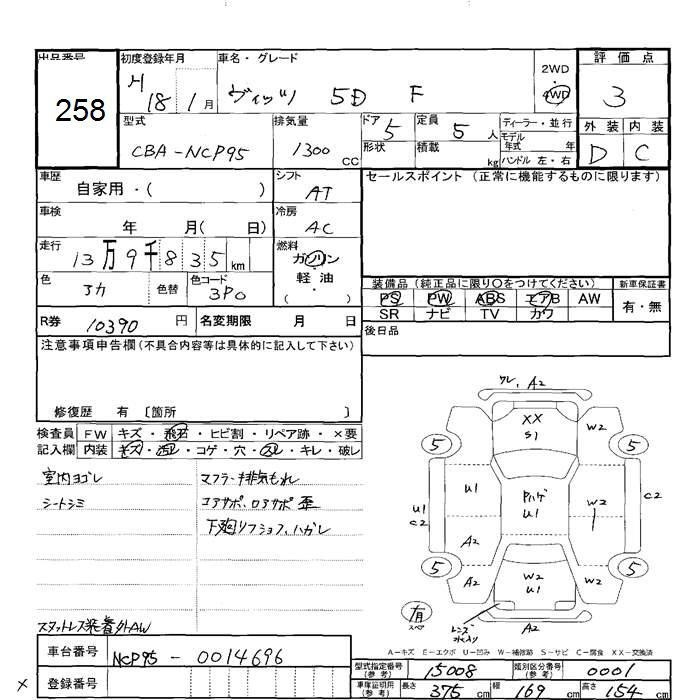 出品番号 初度登録年月 車名・グレード 2WD 評価点
258 H 18年 1月 ヴィッツ 5D F 4WD 3
型式 排気量 ドア 定員 ディーラー・並行 外装 内装
CBA-NCP95 1300 CC 5 5人 モデル年式 年 D C
形状 積載 kg ハンドル 左・右
車歴 シフト セールスポイント (正常に機能するものに限ります)
自家用・( ) AT
車検 冷房
年 月( 日) AC
走行 燃料
13万9千835km ガソリン・軽油・( )
色 色替 色コード 装備品 (純正品に限り〇をつけてください) 新車保証書
アカ 3P0 PS PW ABS エアB AW 有・無
SR ナビ TV カワ
R券 10390円 名変期限 月 日 後日品
注意事項申告欄(不具合内容等は具体的に記入して下さい)
修復歴 有 〔箇所 〕
検査員 FW キズ・飛石・ヒビ割・リペア跡・×要
記入欄 内装 キズ・汚レ・コゲ・穴・スレ・キレ・破レ
室内ヨゴレ マフラー排気もれ
シートシミ コアサポ、ロアサポ 歪
下廻り ハガレ
スタットレス装着外AW
車台番号 NCP95-0014696
登録番号
×
A2
XX
S1
W2
5 5
U1 Pハゲ U1 W2 C2
U1 C2
A2
5 5
A2 W2 U1 W2
有 スペア レンズ 水入り A2
A-キズ E-エクボ U-凹み W-補修跡 S-サビ C-腐食 XX-交換済
型式指定番号(参考) 15008 類別区分番号(参考) 0001
車庫証明用(参考) 長さ 375cm 幅 169cm 高さ 154cm